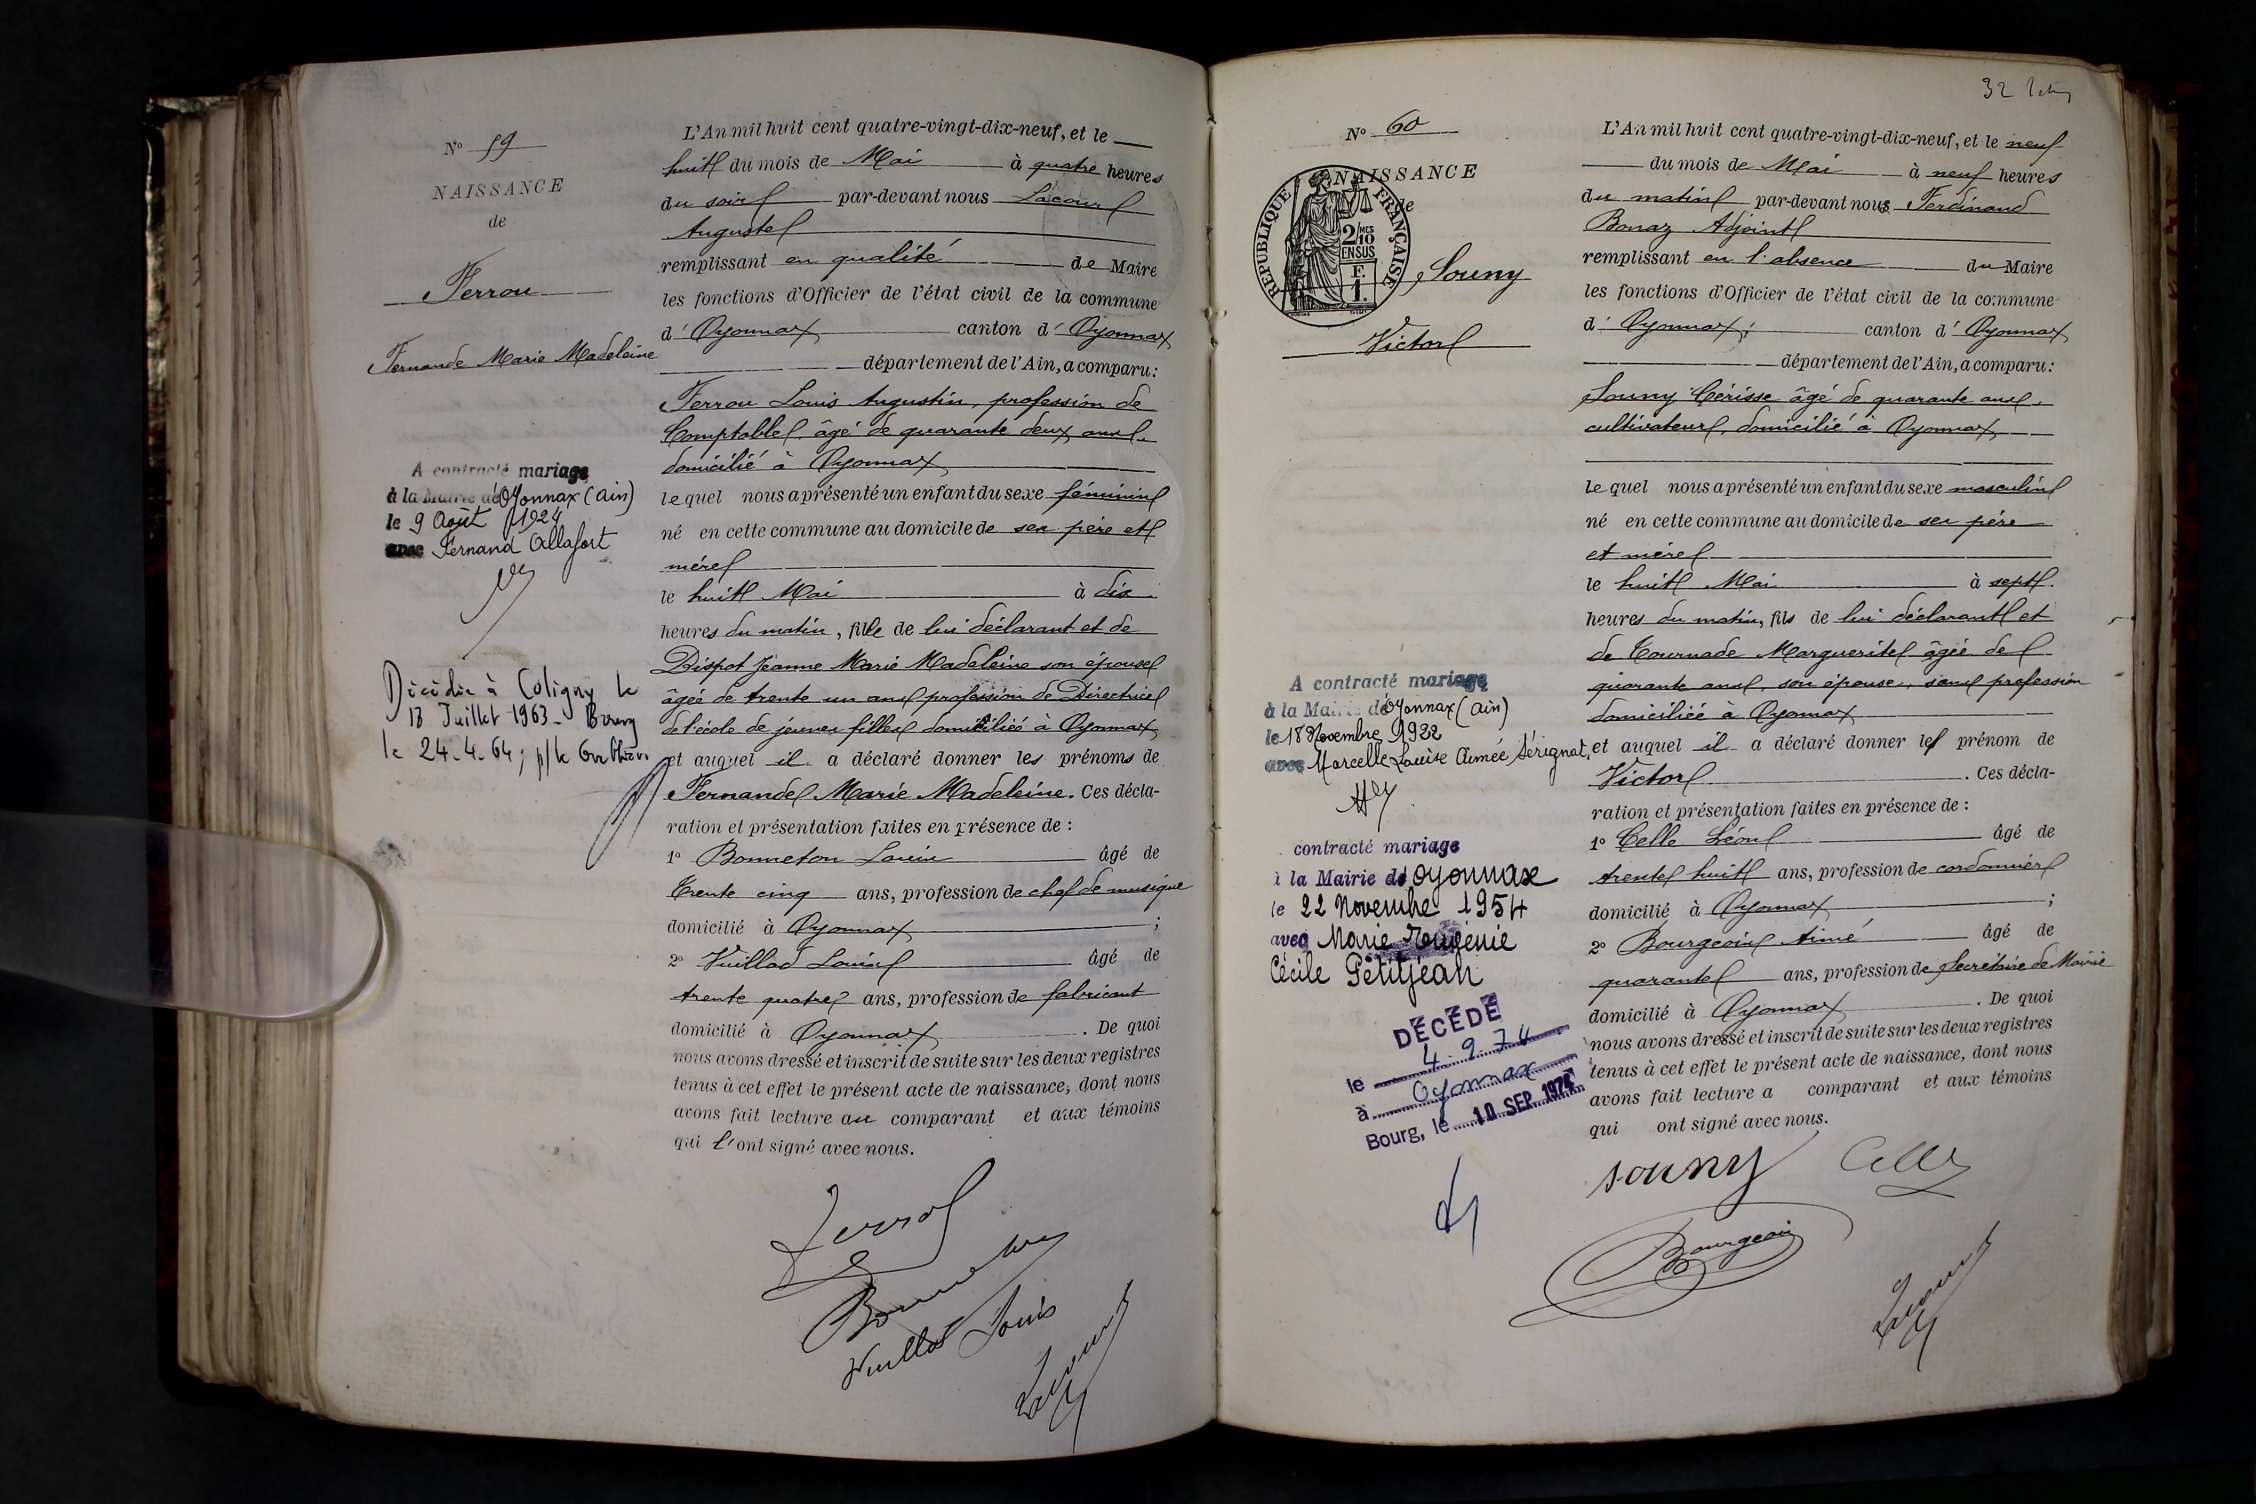 N° 59
NAISSANCE
de
Ferrou
Fernande Marie Madeleine
A contracté mariage
à la Mairie de Oyonnax (Ain)
le 9 Août 1924
avec Fernand Allafort
Décédée à Coligny le
18 Juillet 1963 - Bourg
le 24-4-64; p/le
L'An mil huit cent quatre-vingt-dix-neuf, et le
huit du mois de Mai à quatre heures
du soir par-devant nous Lacour
Auguste
remplissant en qualité de Maire
les fonctions d'Officier de l'état civil de la commune
d' Oyonnax canton d' Oyonnax
département de l'Ain, a comparu:
Ferrou Louis Augustin, profession de
Comptable, âgé de quarante deux ans,
domicilié à Oyonnax
lequel nous a présenté un enfant du sexe féminin
né en cette commune au domicile de ses père et
mère
le huit Mai à dix
heures du matin, fille de lui déclarant et de
Dispot Jeanne Marie Madeleine son épouse
âgée de trente un ans profession de Directrice
de l'école de jeunes filles domiciliés à Oyonnax
et auquel il a déclaré donner les prénoms de
Fernande Marie Madeleine. Ces décla-
ration et présentation faites en présence de :
1° Bonneton âgé de
Trente cinq ans, profession de chef de musique
domicilié à Oyonnax ;
2° Vuillod Louis âgé de
trente quatre ans, profession de fabricant
domicilié à Oyonnax . De quoi
nous avons dressé et inscrit de suite sur les deux registres
tenus à cet effet le présent acte de naissance, dont nous
avons fait lecture au comparant et aux témoins
qui l'ont signé avec nous.
Vuillod Louis
32
N° 60
NAISSANCE
de
RÉPUBLIQUE FRANÇAISE
2/10 MES
EN SUS
F.
1.
Souny
Victor
A contracté mariage
à la Mairie de Oyonnax (Ain)
le 18 Novembre 1922
avec Marcelle Louise Aimée Sérignat,
contracté mariage
à la Mairie de Oyonnax
le 22 Novembre 1954
avec Marie
Cécile Petitjean
DÉCÉDÉ
le 4.9.74
à Oyonnax
Bourg, le 10 SEP 1974
L'An mil huit cent quatre-vingt-dix-neuf, et le neuf
du mois de Mai à neuf heures
du matin par-devant nous Ferdinand
Bonaz Adjoint
remplissant en l'absence du Maire
les fonctions d'Officier de l'état civil de la commune
d' Oyonnax canton d' Oyonnax
département de l'Ain, a comparu:
Souny Cérisse âgé de quarante ans,
cultivateur, domicilié à Oyonnax
lequel nous a présenté un enfant du sexe masculin
né en cette commune au domicile de ses père
et mère
le huit Mai à sept
heures du matin, fils de lui déclarant et
de Tournade Marguerite âgée de
quarante ans, son épouse, sans profession
domiciliée à Oyonnax
et auquel il a déclaré donner les prénom de
Victor . Ces décla-
ration et présentation faites en présence de :
1° Celle Léon âgé de
trente huit ans, profession de cordonnier
domicilié à Oyonnax ;
2° Bourgeoin Aimé âgé de
quarante ans, profession de Secrétaire de Mairie
domicilié à Oyonnax . De quoi
nous avons dressé et inscrit de suite sur les deux registres
tenus à cet effet le présent acte de naissance, dont nous
avons fait lecture a comparant et aux témoins
qui ont signé avec nous.
souny Celle
Bourgeoin